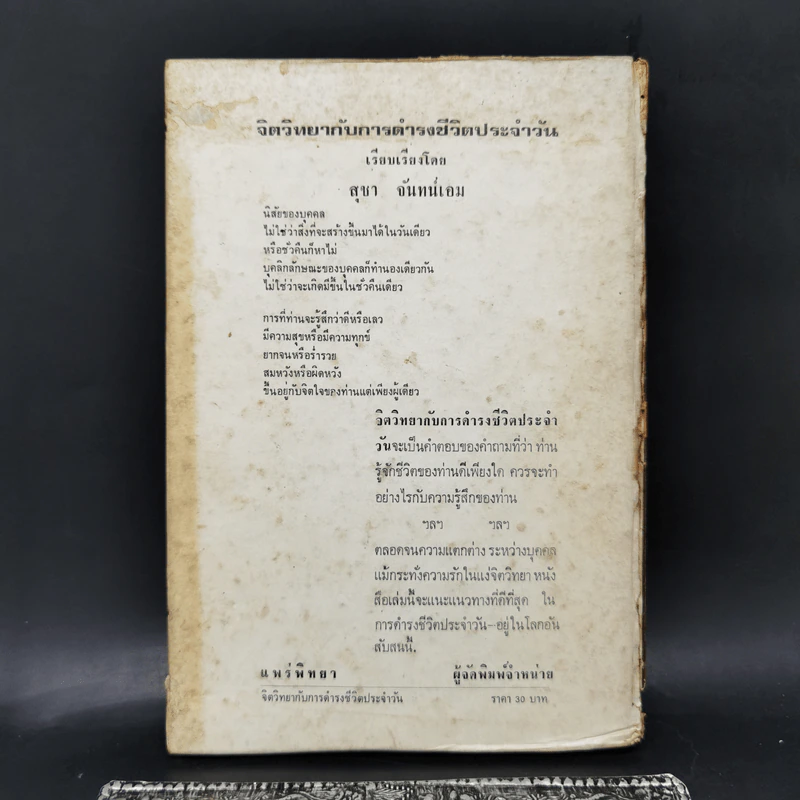 จิตวิทยากับการดำรงชีวิตประจำวัน
เรียบเรียงโดย
สุชา จันทน์เอม
นิสัยของบุคคล
ไม่ใช่ว่าสิ่งที่จะสร้างขึ้นมาได้ในวันเดียว
หรือชั่วคืนก็หาไม่
บุคลิกลักษณะของบุคคลก็ทำนองเดียวกัน
ไม่ใช่ว่าจะเกิดมีขึ้นในชั่วคืนเดียว
การที่ท่านจะรู้สึกว่าดีหรือเลว
มีความสุขหรือมีความทุกข์
ยากจนหรือร่ำรวย
สมหวังหรือผิดหวัง
ขึ้นอยู่กับจิตใจของท่านแต่เพียงผู้เดียว
จิตวิทยากับการดำรงชีวิตประจำ
วันจะเป็นคำตอบของคำถามที่ว่า ท่าน
รู้จักชีวิตของท่านดีเพียงใด ควรจะทำ
อย่างไรกับความรู้สึกของท่าน
ฯลฯ ฯลฯ
ตลอดจนความแตกต่าง ระหว่างบุคคล
แม้กระทั่งความรักในแง่จิตวิทยา หนัง
สือเล่มนี้จะแนะแนวทางที่ดีที่สุด ใน
การดำรงชีวิตประจำวัน—อยู่ในโลกอัน
สับสนนี้.
แพร่พิทยา ผู้จัดพิมพ์จำหน่าย
จิตวิทยากับการดำรงชีวิตประจำวัน ราคา 30 บาท